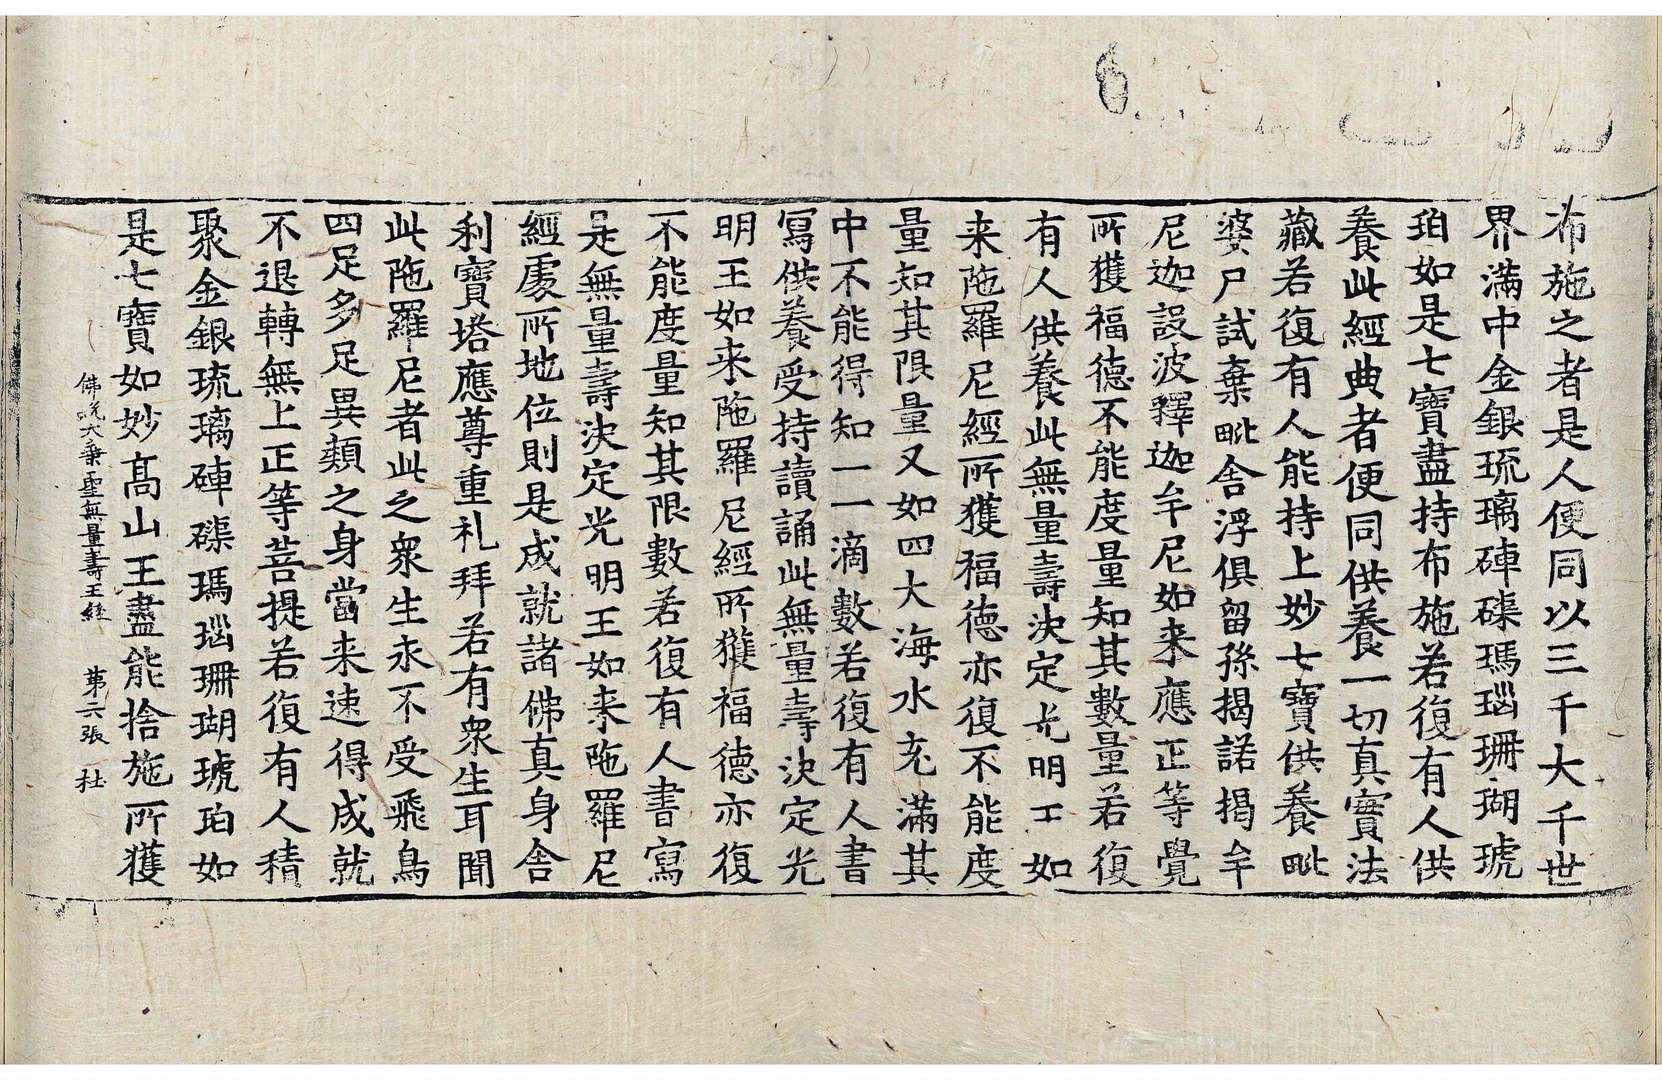 布施之者是人便同以三千大千世
界滿中金銀琉璃硨磲瑪瑙珊瑚琥
珀如是七寶盡持布施若復有人供
養此經典者便同供養一切真實法
藏若復有人能持上妙七寶供養毗
婆尸試棄毗舍浮俱留孫揭諾揭牟
尼迦設波釋迦牟尼如来應正等覺
所獲福德不能度量知其數量若復
有人供養此無量壽決定光明王如
来陁羅尼經所獲福德亦復不能度
量知其限量又如四大海水充滿其
中不能得知一一滴數若復有人書
寫供養受持讀誦此無量壽決定光
明王如来陁羅尼經所獲福德亦復
不能度量知其限數若復有人書寫
是無量壽決定光明王如来陁羅尼
經處所地位則是成就諸佛真身舍
利寶塔應尊重礼拜若有衆生耳聞
此陁羅尼者此之衆生永不受飛鳥
四足多足異類之身當来速得成就
不退轉無上正等菩提若復有人積
聚金銀琉璃硨磲瑪瑙珊瑚琥珀如
是七寶如妙高山王盡能捨施所獲
佛說大乗聖無量壽王經 第六張 杜